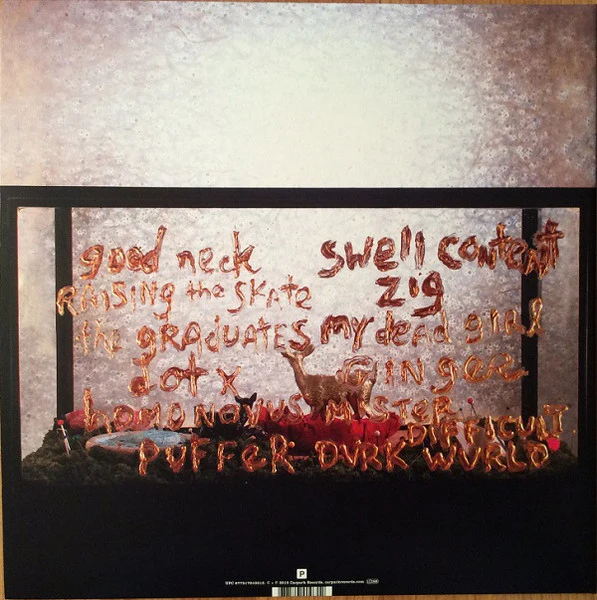 good neck
RAISING the SKATE
the GRADUATES
dot x
HOMO NOVUS
PUFFER
swell content
zig
my dead girl
GINGER
MISTER
DIFFICULT
DVRK WVRLD
P